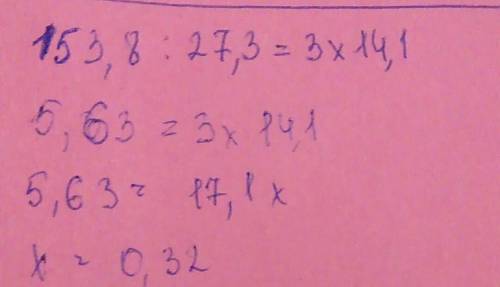 153,8 : 27,3 = 3x14,1
5,63 = 3x14,1
5,63 = 17,1x
x = 0,32